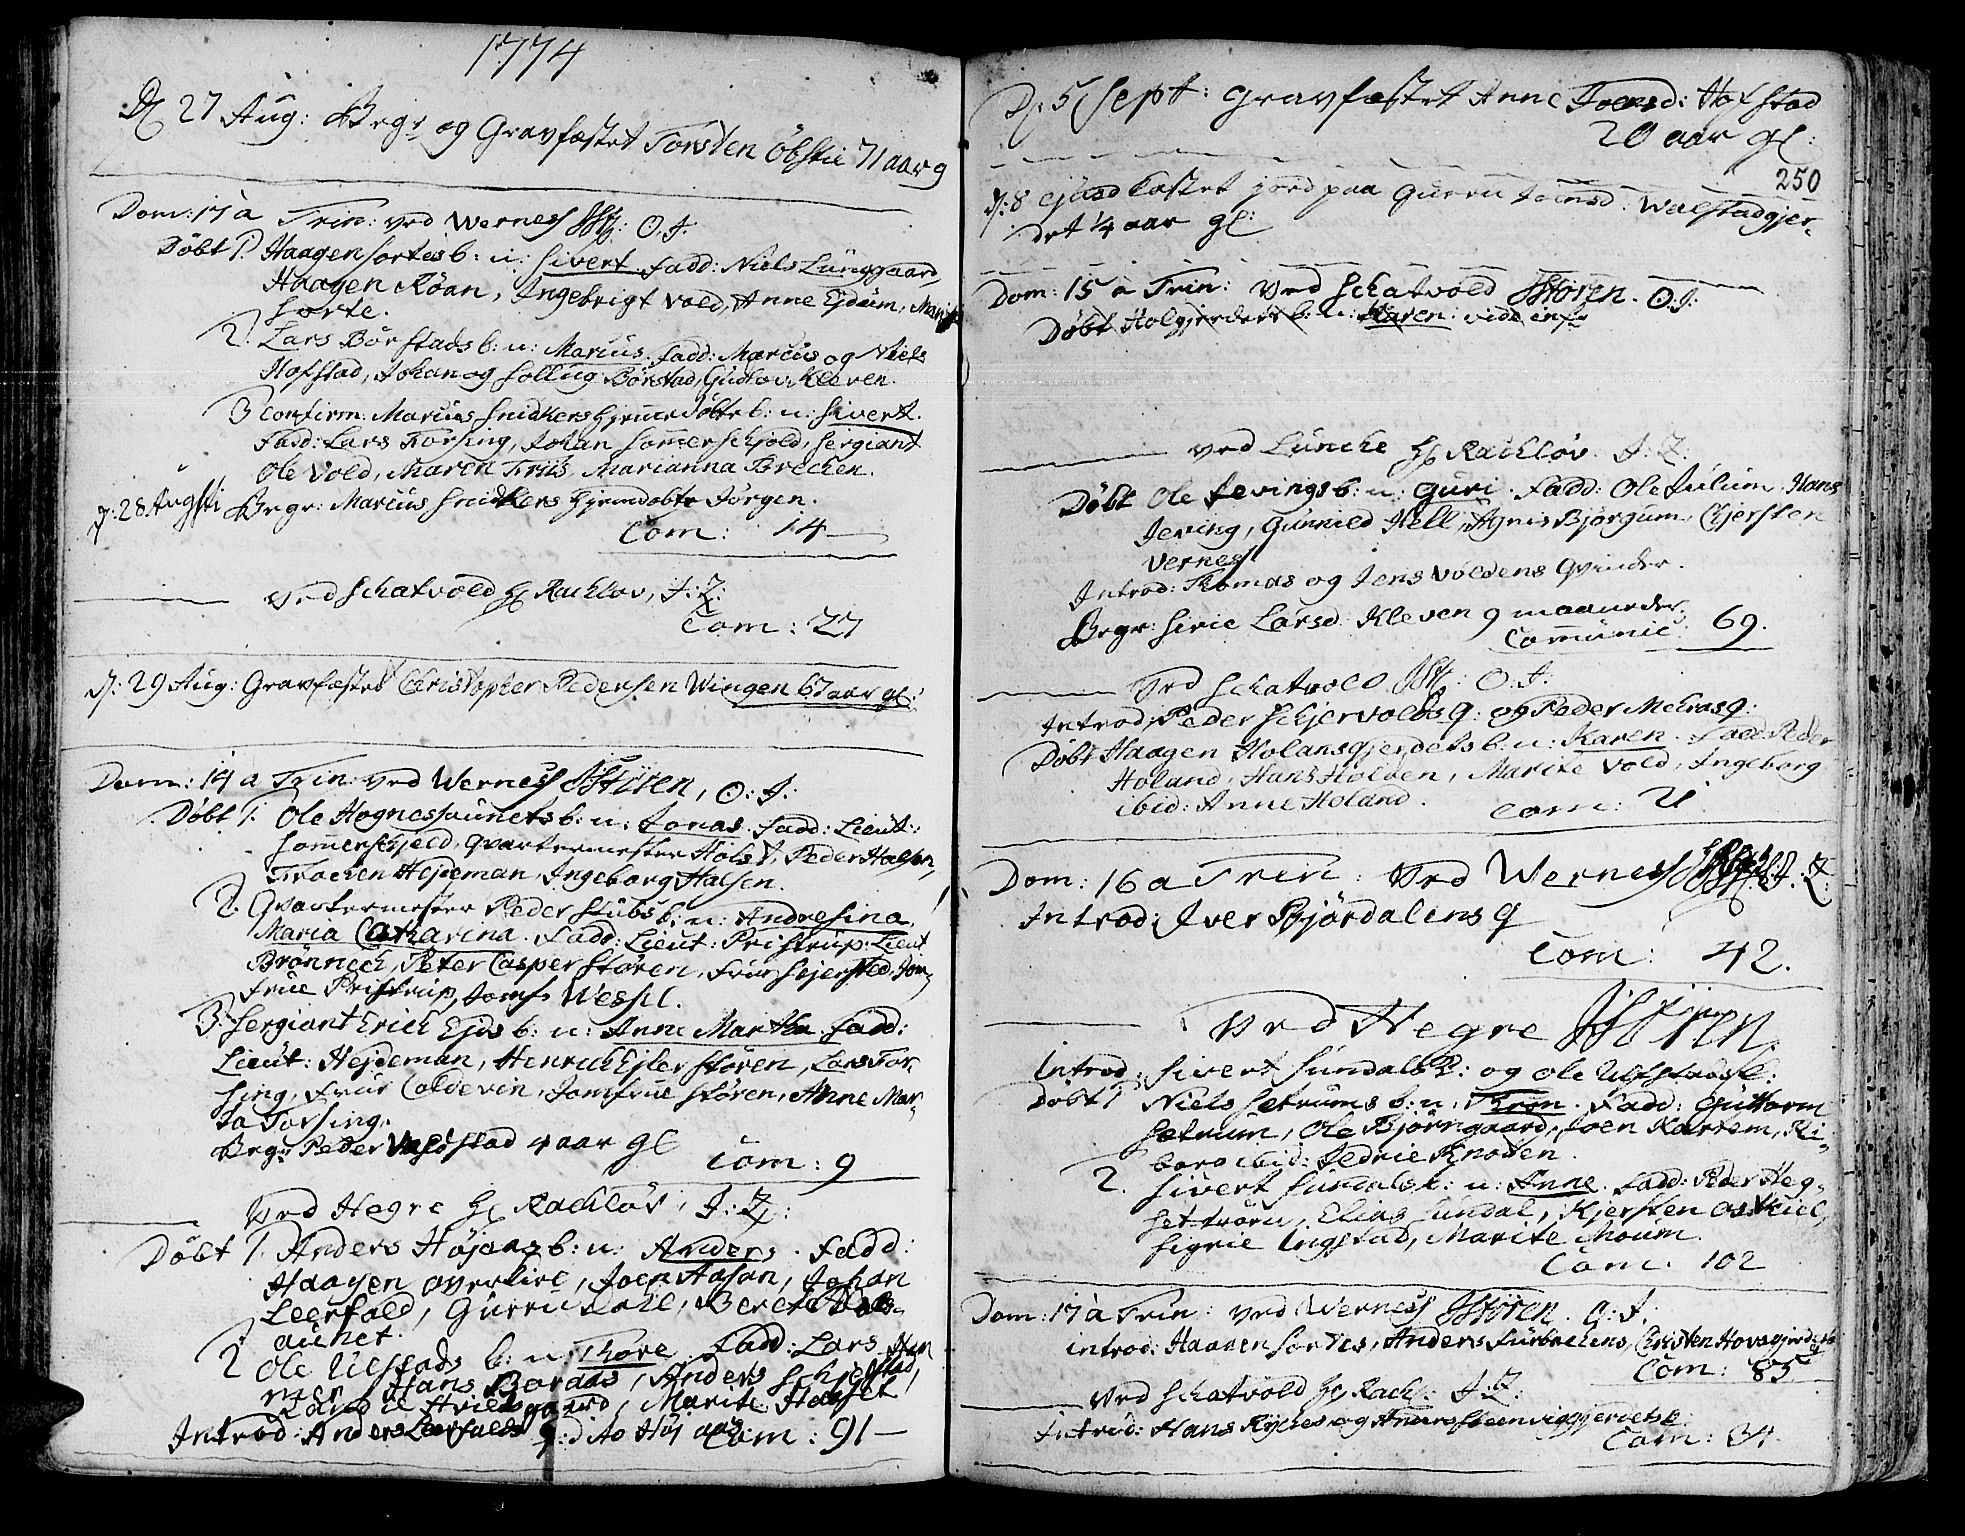 1774
D: 27 Aug: Begr: og Gravfæstet Torsten Öbstie 71 aar g
Dom: 13 a Trin: ved Wernes O. J.
Döbt 1. Haagen Sortes b: n: Sivert Fadd: Niels Lunggaard,
Haagen Röan, Ingebrigt Vold, Anne Ejdum, Marit
Sorte.
2. Lars Börstads b: n: Marcus. Fadd: Marcus og Niels
Hofstad, Johan og Sollug Börstad, Gudlov Kleven.
3 Confirm: Marcus Snidkers hjemmedöbte b: n: Sivert.
Fadd: Lars Torsing, Johan Sommerschjold, Sergiant
Ole Vold, Maren Friis, Marianna Brechen.
D: 28 Augsti Begr: Marcus Snidkers hjemdöbte Jörgen.
Com: 14
Ved Schatvold Hr Rachlov, J: Z:
Com: 27
D: 29 Aug: Gravfæstet Christopher Pedersen Wingen 67 aar gl:
Dom: 14 a Trin: ved Wernes Stören, O: J:
Döbt 1. Ole Hognessaunets b: n: Jonas. Fadd: Lieut:
Sommerschjeld, Qvartermester Holst, Peder Halsen,
Trochen Hejdeman, Ingeborg Halsen.
2. Qvartermester Peder Stubs b: n: Andresina
Maria Catharina. Fadd: Lieut: Pristrup: Lieut
Brönnech, Peter Casper Stören, Frue Hjersted, Jom-
frue Pristrup, Jomf: Wessel.
3. Sergiant Erich Ejds b: n: Anne Martha. Fadd:
Lieut: Hejdeman, Henrich Ejler Stören, Lars Tor-
sing, Frue Coldevin, Jomfrue Stören, Anne Mar-
ta Torsing.
Begr: Peder Valstad 4 aar gl
Com: 9
Ved Hegre Hr Rachlöv, J: Z:
Döbt 1. Anders Höjaas b: n: Anders. Fadd:
Haagen Overlire, Joen Aasan, Johan
Leerfald, Gurru, Beret
aunet.
2 Ole Ulstads b: n: Thore. Fadd: Lars
Hans Bordas, Anders Schjelstad,
Marite
Introd: Anders Leerfalds q: dito Höj aas Com: 91
D: 5 Sept: Gravfæstet Anne Toersd: Hofstad
20 aar gl:
250
D: 8 ejusd Castet jord paa Gurru Joensd: Walstadgjer-
det 1/4 aar gl:
Dom: 15 a Trin: Ved Schatvold Stören. O. J:
Döbt Holgjerdets b: n: Karen: vide infr
Ved Luncke Hr Rachlov. J: Z:
Döbt Ole Jevings b: n: Guri. Fadd: Ole Julum. Hans
Jeving, Gunnild Hell, Agnis Bjorgum, Chjersten
Vernes
Introd: Thomas og Jens Voldens Qvinder.
Begr: Sirie Larsd: Kleven 9 maaneder.
Communic: 69.
Ved Schatvold O. J.
Introd: Peder Schjervolds q: og Peder Mehras q:
Döbt Haagen Holansgjerdets b: n: Karen. Fadd: Peder
Holand, Hans Holden, Marite Vold, Ingeborg
ibid: Anne Holand.
Com: 21
Dom: 16 a Trin: Ved Wernes J. Z:
Introd: Iver Björdalens q
Com: 42.
Ved Hegre Stören.
Introd: Sivert Sundals q: og Ole Ulstads q:
Döbt 1 Niels Setrums b: n:. Fadd: Guttorm
Setrum, Ole Björngaard, Joen Kartem, Ki-
borg ibid: Sedvie Knoten.
2. Sivert Sundals b: n: Anne. Fadd: Peder Heg-
settröen, Elias Sundal, Kjersten Oskiel,
Sigrie Ingstad, Marite Moum.
Com. 102
Dom: 17 a Trin: ved Wernes Stören. O. J:
introd: Haagen Sortes, Anders Furbechens, Christen Hovsgjerdets q:
Com: 85
Ved Schatvold Hr Rach: J: Z:
Introd: Hans Ryches og Anders Steenviggjerdets q:
Com: 34